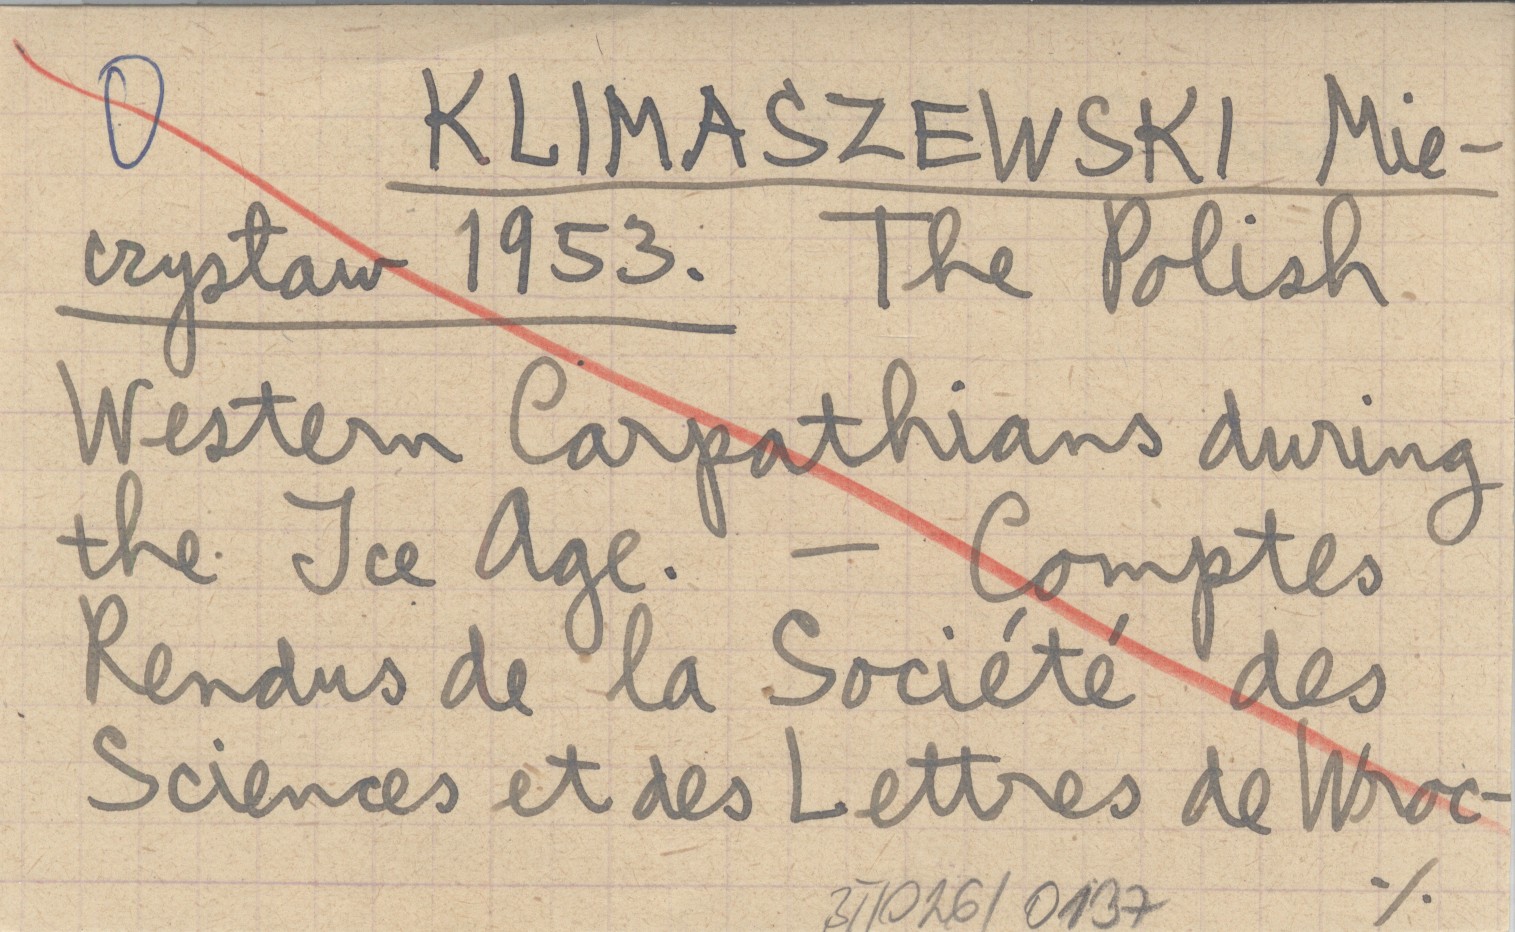 0 KLIMASZEWSKI Mie-
czysław 1953. The Polish
Western Carpathians during
the Ice Age. — Comptes
Rendus de la Société des
Sciences et des Lettres de Wroc-
·/.
/026/ 0137